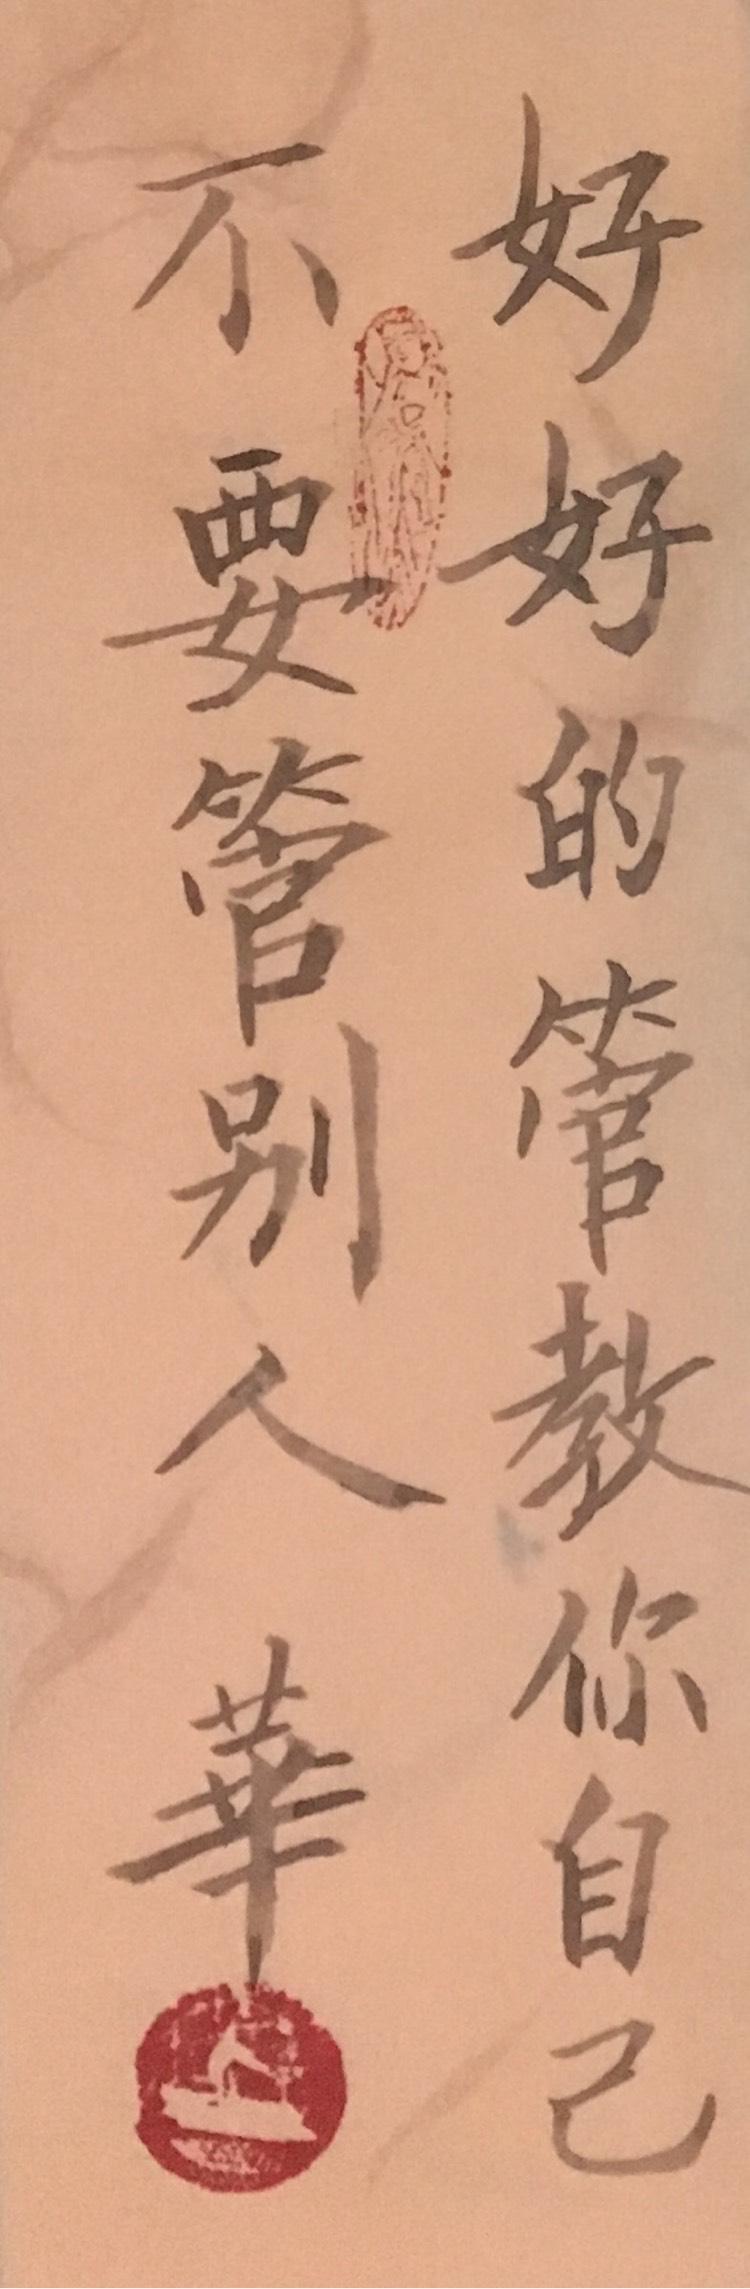 好好的管教你自己
不要管别人
華